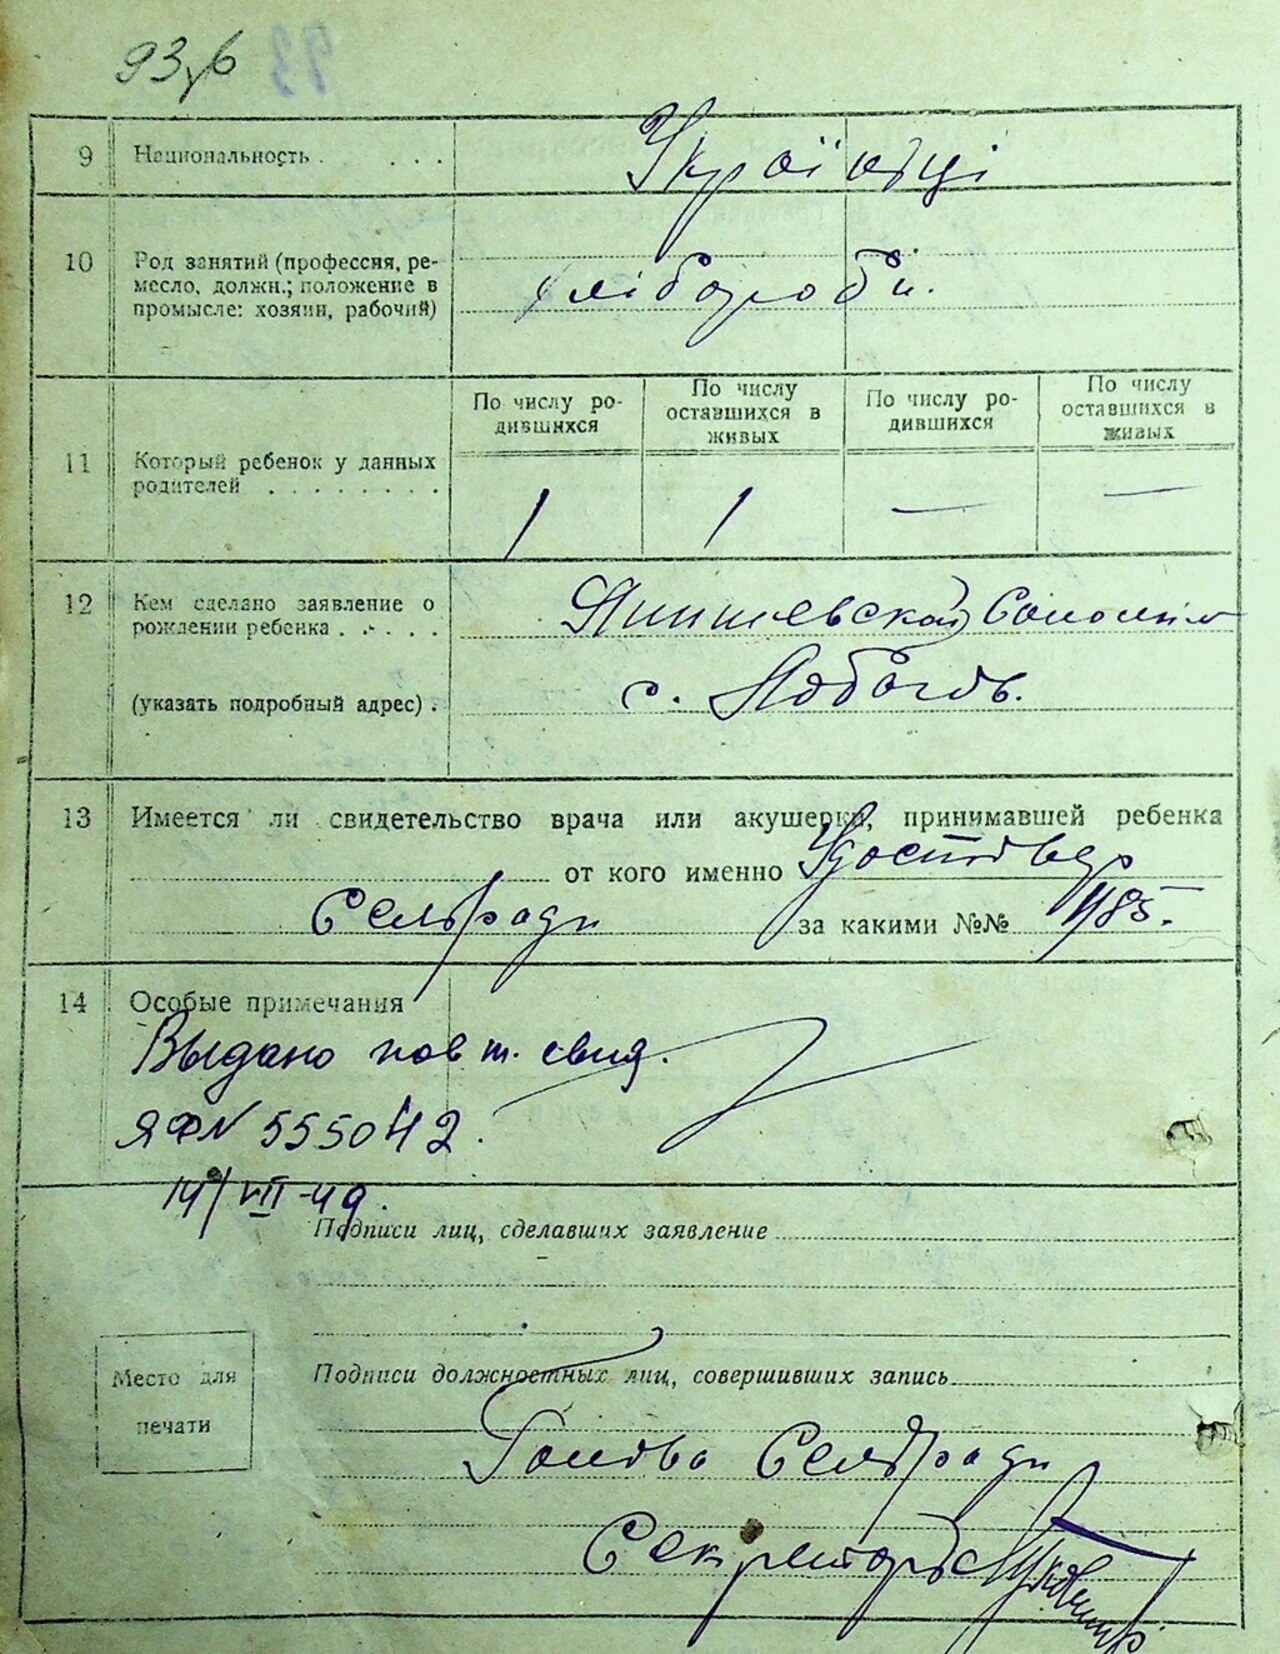 93
9 Национальность . . . . Українці
10 Род занятий (профессия, ре-
месло, должн.; положение в
промысле: хозяин, рабочий)
хлібороби.
По числу ро-
дившихся
По числу
оставшихся в
живых
По числу ро-
дившихся
По числу
оставшихся в
живых
11 Который ребенок у данных
родителей . . . . . . . .
1 1 — —
12 Кем сделано заявление о
рождении ребенка . . . . .
(указать подробный адрес) .
с.
13 Имеется ли свидетельство врача или акушерки, принимавшей ребенка
от кого именно
Сельради за какими №№ 485.
14 Особые примечания
Выдано повт. свид.
ЯФ N 555042.
14/VII-49.
Подписи лиц, сделавших заявление
Место для
печати
Подписи должностных лиц, совершивших запись
Голова Сельради
Секретарь